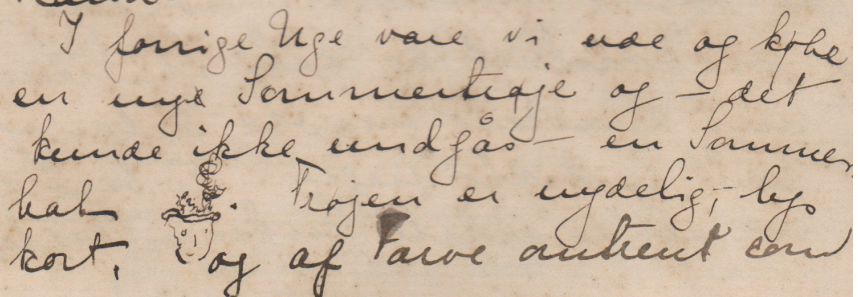 I forrige Uge vare vi ude og købe
en nye Sommertrøje og – det
kunde ikke undgås – en Sommer
hat . Trøjen er nydelig; lys
kort, og af Farve omtrent som